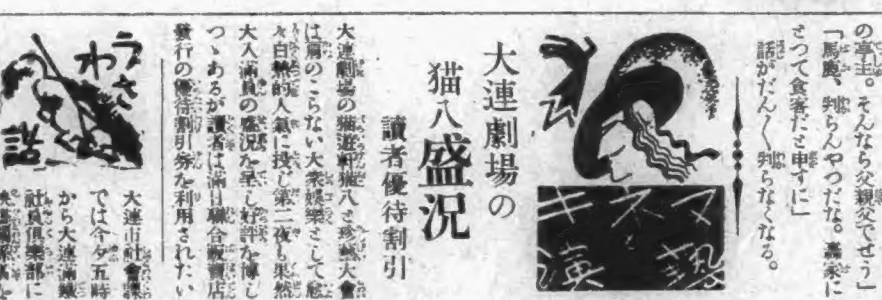 の亭主。そんなら父親父でせう」
「馬鹿、判らんやつだな。壽家に
とつて食客だと申すに」
話がだん〱判らなくなる。
キネマと
演藝
大連劇場の
猫八盛況
讀者優待割引
大連劇場の猫遊軒猫八と珍藝大會
は肩のこらない大衆娯樂として愈
々白熱的人氣に投じ第二夜も果然
大入滿員の盛況を呈し好評を博し
つゝあるが讀者は滿日聯合販賣店
發行の優待割引券を利用されたい
うさ
わ
話
大連市社會課
では今夕五時
から大連滿鐵
社員倶樂部に